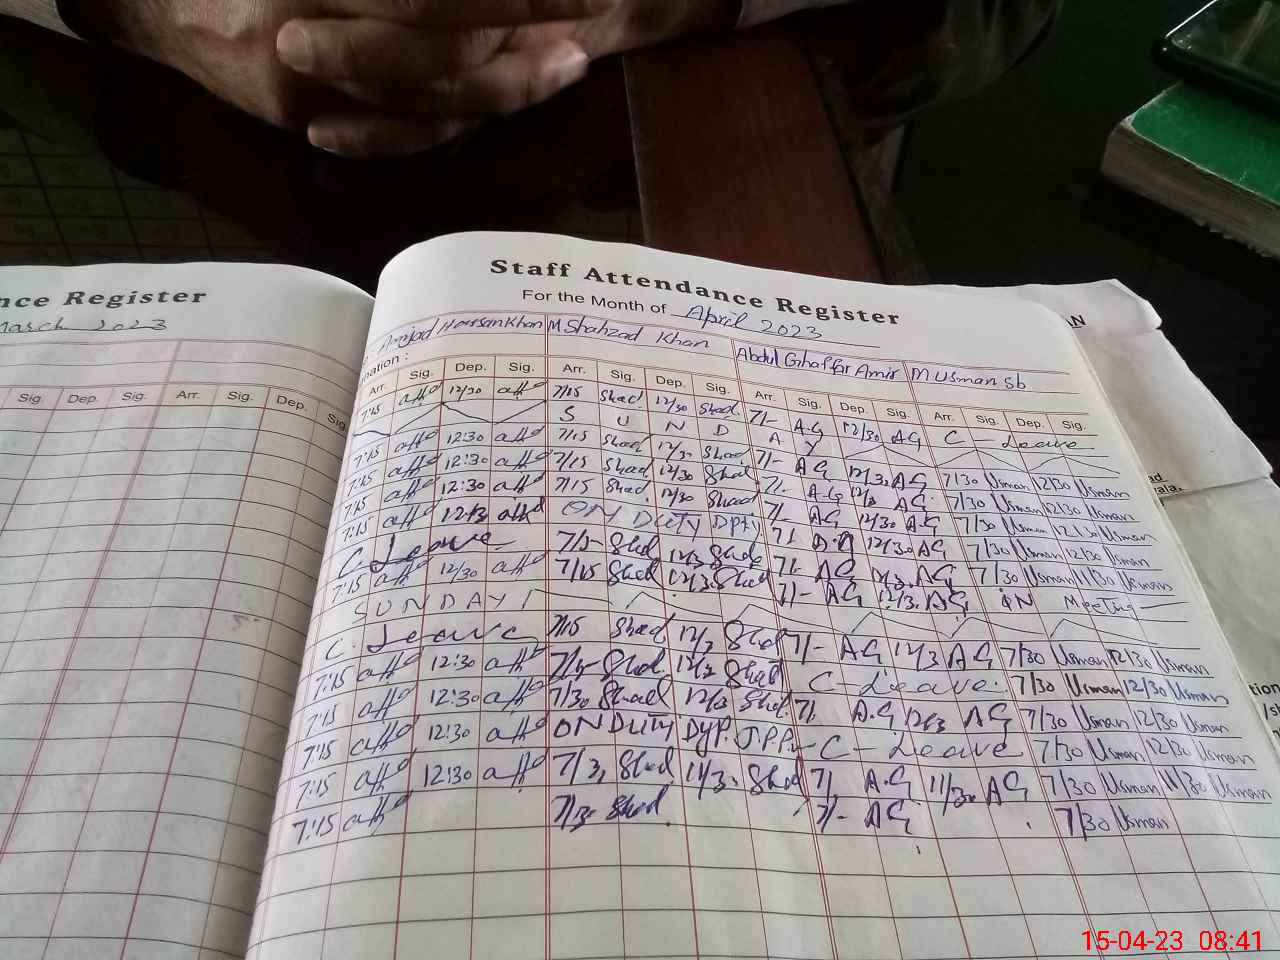 nce Register
March 2023
Sig. Dep. Sig. Arr. Sig. Dep. Sig
Staff Attendance Register
For the Month of April 2023
Amjad Hassan Khan M Shahzad Khan Abdul Ghaffar Amir M Usman Sb
nation :
Arr. Sig. Dep. Sig. Arr. Sig. Dep. Sig. Arr. Sig. Dep. Sig. Arr. Sig. Dep. Sig.
7:15 12/30 7/15 Shad. 12/30 Shad. 7/- A.G 12/30 AG C - Leave
S U N D A Y
7:15 12:30 7/15 Shad 12/30 Shad 7/- AG 12/3. AG 7/30 Usman 12/30 Usman
7:15 12:30 7/15 Shad 12/30 Shad 7/- A.G 12/3 AG 7/30 Usman 12/30 Usman
7:15 12:30 7/15 Shad 12/30 Shad 7/- AG 12/30 A.G 7/30 Usman 12/30 Usman
7:15 12/3 ON DUTY 7/- A.G 12/30 AG 7/30 Usman 12/30 Usman
C. Leave 7/15 Shad 12/3 Shad 7/- AG 12/3. AG 7/30 Usman 11/30 Usman
7:15 12/30 7/15 Shad 12/3 Shad 7/- AG 12/3. AG ON Meeting
SUNDAY
C. Leave 7/15 Shad 12/3 Shad 7/- AG 12/3 AG 7/30 Usman 12/30 Usman
7:15 12:30 7/15 Shad. 12/3 Shad C - Leave. 7/30 Usman 12/30 Usman
7:15 12:30 7/30 Shad 12/3 Shad. 7/. A.G 12/3 AG 7/30 Usman 12/30 Usman
7:15 12:30 ON DUTY C - Leave 7/30 Usman 12/30 Usman
7:15 12:30 7/3, Shad 11/3. Shad 7/. A.G 11/30 AG 7/30 Usman 11/30 Usman
7:15 7/30 Shad. 7/- AG 7/30 Usman
AN
ad
ala.
tion
15-04-23 08:41